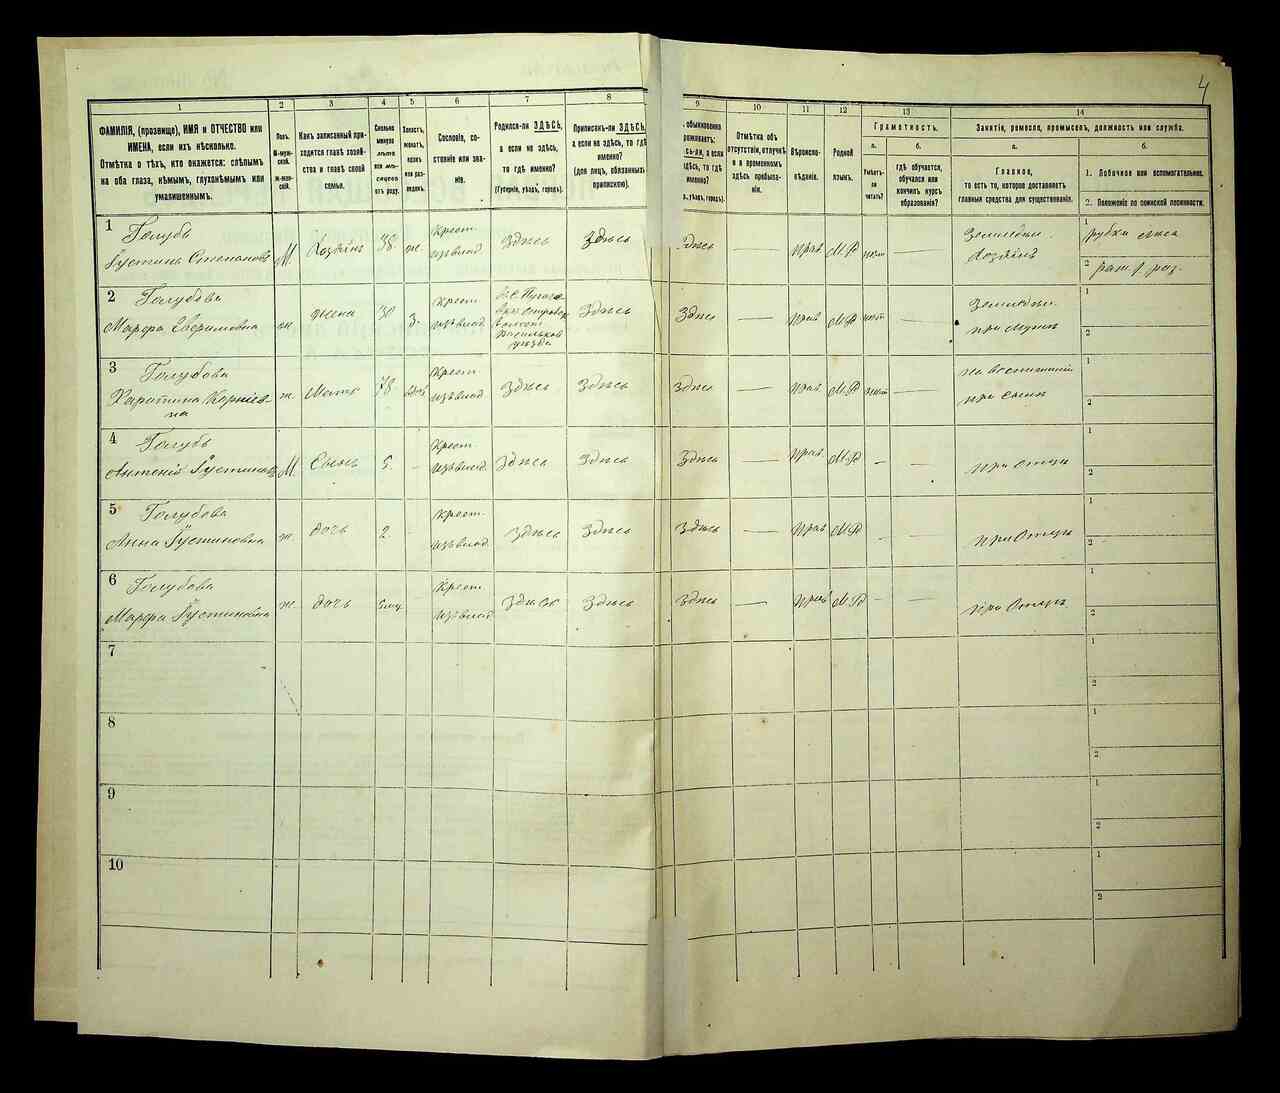 4
1 2 3 4 5 6 7 8 9 10 11 12 13 14
ФАМИЛІЯ, (прозвище), ИМЯ и ОТЧЕСТВО или
ИМЕНА, если ихъ нѣсколько.
Отмѣтка о тѣхъ, кто окажется: слѣпымъ
на оба глаза, нѣмымъ, глухонѣмымъ или
умалишеннымъ.
Полъ.
М-муж-
ской.
Ж-жен-
скій.
Какъ записанный при-
ходится главѣ хозяй-
ства и главѣ своей
семьи.
Сколько
минуло
лѣтъ
или мѣ-
сяцевъ
отъ роду.
Холостъ,
женатъ,
вдовъ
или раз-
веденъ.
Сословіе, со-
стояніе или зва-
ніе.
Родился-ли ЗДѢСЬ,
а если не здѣсь,
то гдѣ именно?
(Губернія, уѣздъ, городъ).
Приписанъ-ли ЗДѢСЬ,
а если не здѣсь, то гдѣ
именно?
(для лицъ, обязанныхъ
припискою).
обыкновенно
проживаетъ:
сь-ли, а если
здѣсь, то гдѣ
именно?
, уѣздъ, городъ).
Отмѣтка объ
отсутствіи, отлучкѣ
и о временномъ
здѣсь пребыва-
ніи.
Вѣроиспо-
вѣданіе.
Родной
языкъ.
Грамотность.
а.
Умѣетъ-
ли
читать?
б.
гдѣ обучается,
обучался или
кончилъ курсъ
образованія?
Занятіе, ремесло, промыселъ, должность или служба.
а.
Главное,
то есть то, которое доставляетъ
главныя средства для существованія.
б.
1. Побочное или вспомогательное.
2. Положеніе по воинской повинности.
1 Голубь Крест. Земледѣл. 1 рубка лѣса
Густинъ Степановъ М. Хозяинъ 38 же. изъ влад. Здѣсь Здѣсь Здѣсь — Прав. М.Р. нѣт — Хозяинъ 2
2 Голубова Крест. Земледѣл. 1
Марфа ж. жена 30 з. изъ влад. Здѣсь Здѣсь — Прав. М.Р. нѣт — при Мужѣ 2
уѣзда
3 Голубова Крест. 1
Харитина Корніев-
на ж. Мать 78 вдов. изъ влад. Здѣсь Здѣсь Здѣсь — Прав. М.Р. нѣт — при Сынѣ 2
4 Голубь Крест. 1
Антоній Густинов М. Сынъ 5. - изъ влад. Здѣсь Здѣсь Здѣсь — Прав. М.Р. - — при Отцѣ 2
5 Голубова Крест. 1
Анна Густиновна ж. дочь 2 - изъ влад. Здѣсь Здѣсь Здѣсь — Прав. М.Р. - — при Отцѣ 2
6 Голубова Крест. 1
Марфа Густиновна ж. дочь изъ влад. Здѣсь Здѣсь Здѣсь — Прав. М.Р. - — при Отцѣ 2
7 1
2
8 1
2
9 1
2
10 1
2